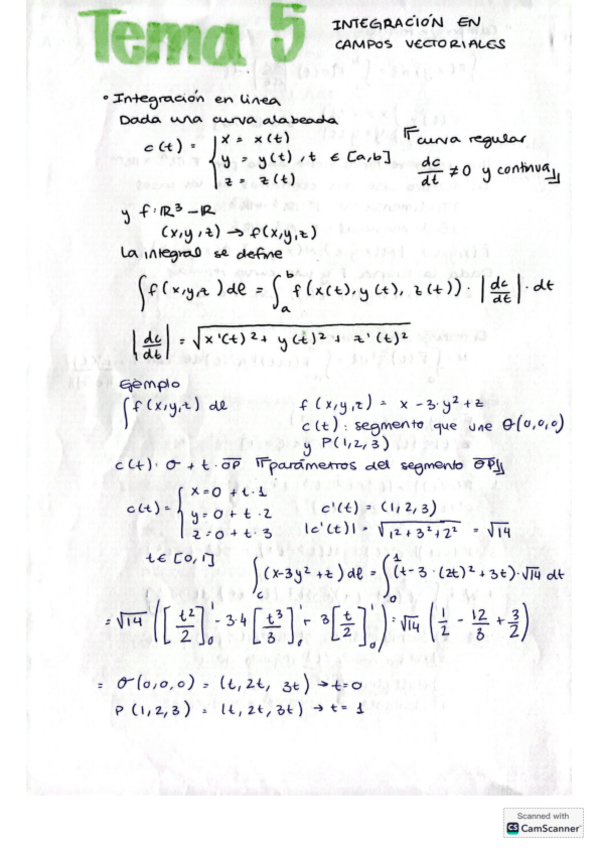 Tema 5 INTEGRACIÓN EN
CAMPOS VECTORIALES
• Integración en linea
Dada una curva alabeada
c(t) = { x = x(t)
y = y(t), t ∈ [a,b]
z = z(t)
curva regular
dc/dt ≠ 0 y continua
y f: IR³ – IR
(x,y,z) → f(x,y,z)
La integral se define
∫ f(x,y,z) dl = ∫ₐᵇ f(x(t), y(t), z(t)) · |dc/dt| · dt
|dc/dt| = √x'(t)² + y(t)² + z'(t)²
Ejemplo
∫ f(x,y,z) dl f(x,y,z) = x - 3·y² + z
c(t): segmento que une O(0,0,0)
y P(1,2,3)
c(t) · O + t · OP parámetros del segmento OP
c(t) = { x = 0 + t · 1
y = 0 + t · 2
z = 0 + t · 3
c'(t) = (1,2,3)
|c'(t)| = √1² + 3² + 2² = √14
t ∈ [0,1]
∫c (x-3y² + z) dl = ∫₀¹ (t - 3 · (2t)² + 3t) · √14 dt
= √14 ([t²/2]₀¹ - 3·4 [t³/3]₀¹ + 3 [t/2]₀¹) = √14 (1/2 - 12/3 + 3/2)
= O(0,0,0) = (t, 2t, 3t) → t=0
P(1,2,3) = (t, 2t, 3t) → t= 1
Scanned with
CS CamScanner